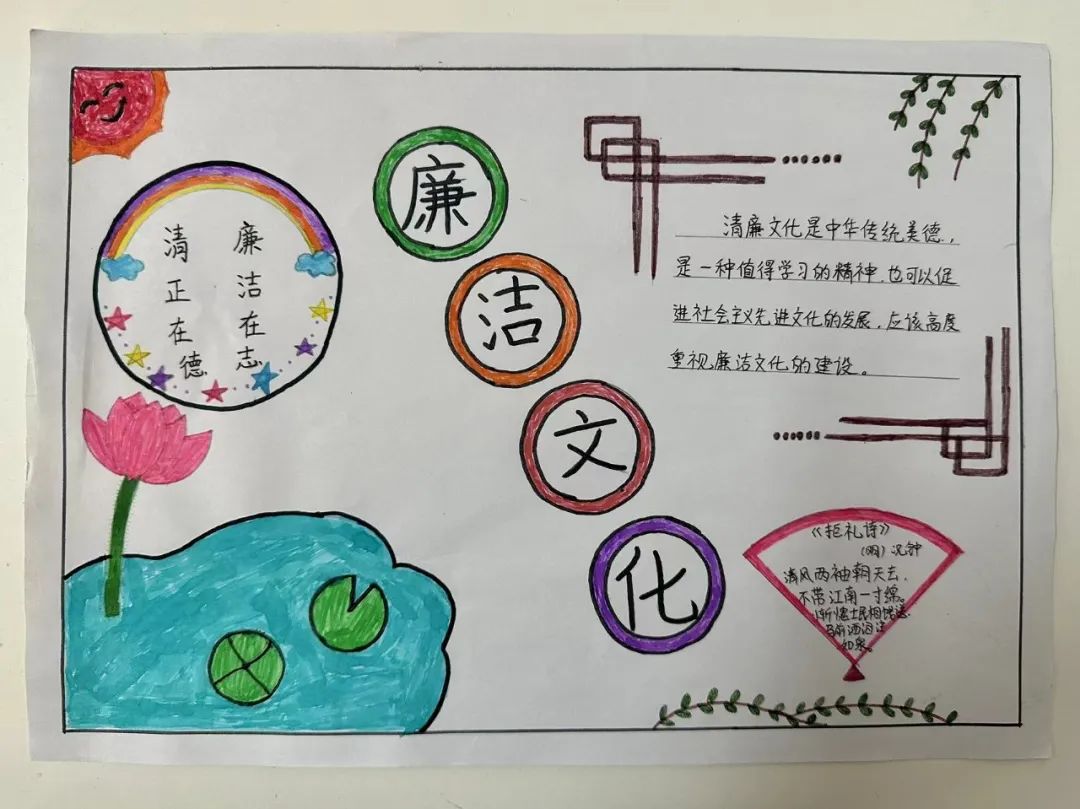 廉洁文化
廉洁在志
清正在德
清廉文化是中华传统美德,
是一种值得学习的精神.也可以促
进社会主义先进文化的发展.应该高度
重视廉洁文化的建设。
《拒礼诗》
(明)况钟
清风两袖朝天去,
不带江南一寸绵。
惭愧士民相馈送
马前洒泪注
如泉。